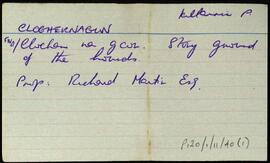 Kilkerrin P
CLOGHERNAGUN
Clochar na gcon. Stony ground
of the hounds.
Prop: Richard Martin Esq.
P120/1/11/40(1)